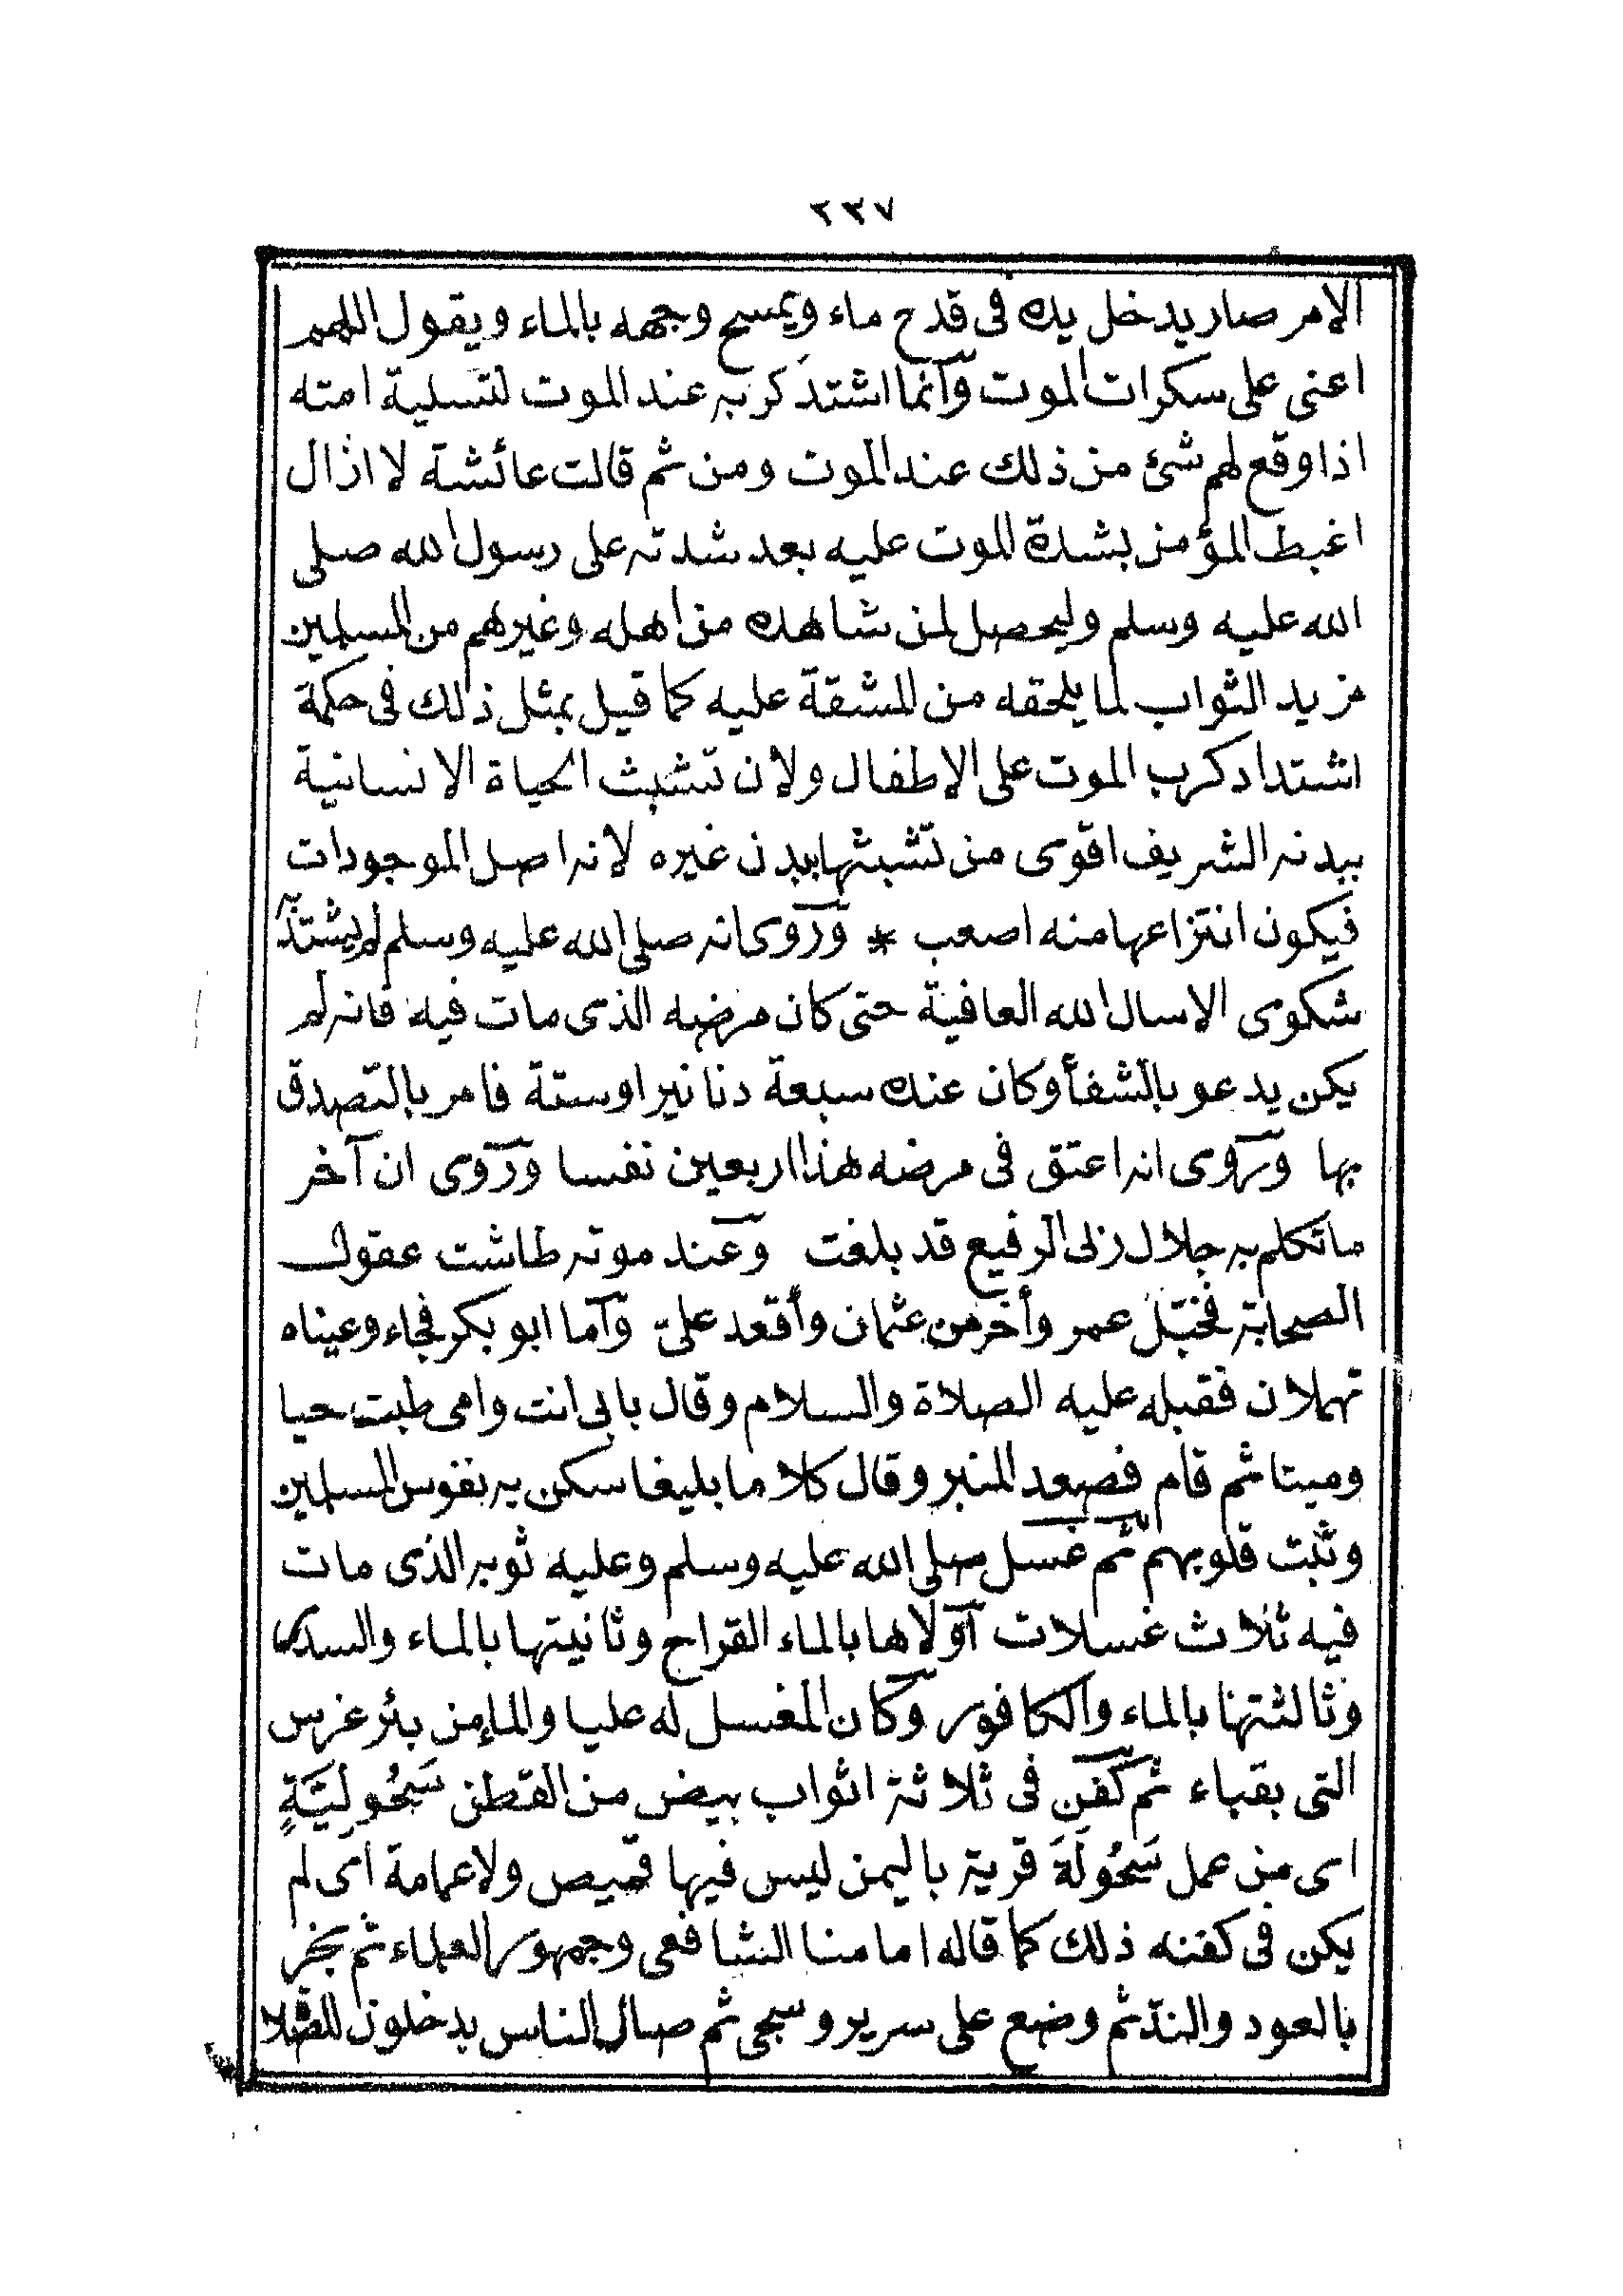 ٢٣٧
الامر صار يدخل يده فى قدح ماء ويمسح وجهه بالماء ويقول اللهم
اعنى على سكرات الموت وانما اشتد كربه عند الموت لتسلية امته
اذا وقع لهم شئ من ذلك عند الموت ومن ثم قالت عائشة لا ازال
اغبط المؤمن بشدة الموت عليه بعد شدته على رسول الله صلى
الله عليه وسلم وليحصل لمن شاهده من اهله وغيرهم من المسلمين
مزيد الثواب لما يلحقه من المشقة عليه كما قيل بمثل ذلك فى حكمة
اشتداد كرب الموت على الاطفال ولان تشبث الحياة الانسانية
ببدنه الشريف اقوى من تشبثها ببدن غيره لانه اصل الموجودات
فيكون انتزاعها منه اصعب * وروى انه صلى الله عليه وسلم لم يشتد به
شكوى الا سال الله العافية حتى كان مرضه الذى مات فيه فانه لم
يكن يدعو بالشفأ وكان عنده سبعة دنانير او ستة فامر بالتصدق
بها وروى انه اعتق فى مرضه هذا اربعين نفسا وروى ان آخر
ما تكلم به جلال ربى الرفيع قد بلغت وعند موته طاشت عقول
الصحابة فخبّل عمر وأخرس عثمان وأقعد علىّ وآما ابو بكر فجاء وعيناه
تهملان فقبله عليه الصلاة والسلام وقال بابى انت وامى طبت حيا
وميتا ثم قام فصعد المنبر وقال كلاما بليغا سكن به نفوس المسلمين
وثبت قلوبهم ثم غسل صلى الله عليه وسلم وعليه ثوبه الذى مات
فيه ثلاث غسلات آولاها بالماء القراح وثانيتها بالماء والسدر
وثالثتها بالماء والكافور وكان المغسل له عليا والمأ من بئر غرس
التى بقباء ثم كفن فى ثلاثة اثواب بيض من القطن سَحُولِيَّةٍ
اى من عمل سَحُولَةَ قرية باليمن ليس فيها قميص ولا عمامة اى لم
يكن فى كفنه ذلك كما قاله امامنا الشافعى وجمهور العلماء ثم بخر
بالعود والندّ ثم وضع على سرير وسجى ثم صار الناس يدخلون للصلاة